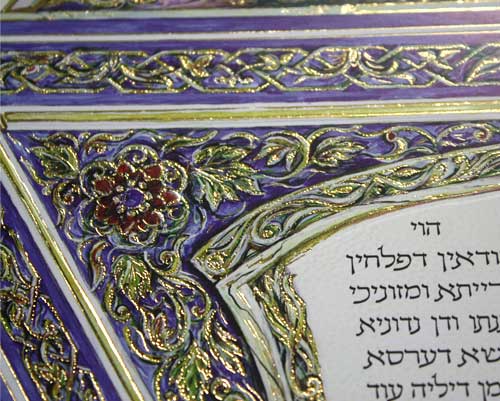 הוי
ודאין דפלחין
רייתא ומזוניכי
נתו ודן נדוניא
שא דערסא
מן דיליה עוד